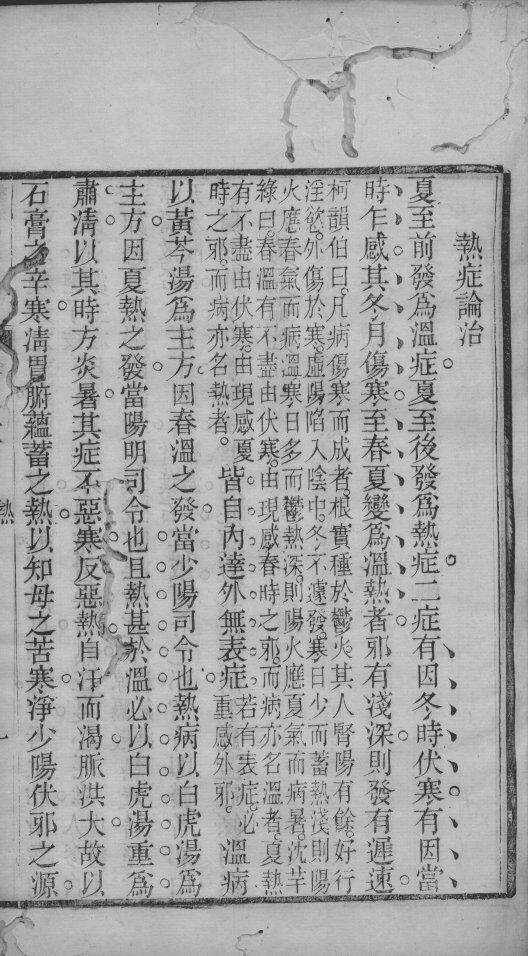 熱症論治
夏至前發爲溫症夏至後發爲熱症二症有因冬時伏寒有因當
時乍感其冬月傷寒至春夏變爲溫熱者邪有淺深則發有遲速
柯韻伯曰。凡病傷寒而成者。根實種於鬱火。其人腎陽有餘。好行
淫慾。外傷於寒。虛陽陷入陰中。冬不遽發。寒日少而蓄熱淺。則陽
火應春氣而病溫。寒日多而鬱熱深。則陽火應夏氣而病暑。沈芊
綠曰。春溫有不盡由伏寒。由現感春時之邪。而病亦名溫者。夏熱
有不盡由伏寒。由現感夏
時之邪。而病亦名熱者。
皆自內達外無表症
若有表症。必
重感外邪。
溫病
以黃芩湯爲主方因春溫之發當少陽司令也熱病以白虎湯爲
主方因夏熱之發當陽明司令也且熱甚於溫必以白虎湯重爲
肅清以其時方炎暑其症不惡寒反惡熱自汗而渴脈洪大故以
石膏之辛寒清胃腑蘊蓄之熱以知母之苦寒淨少陽伏邪之源
熱